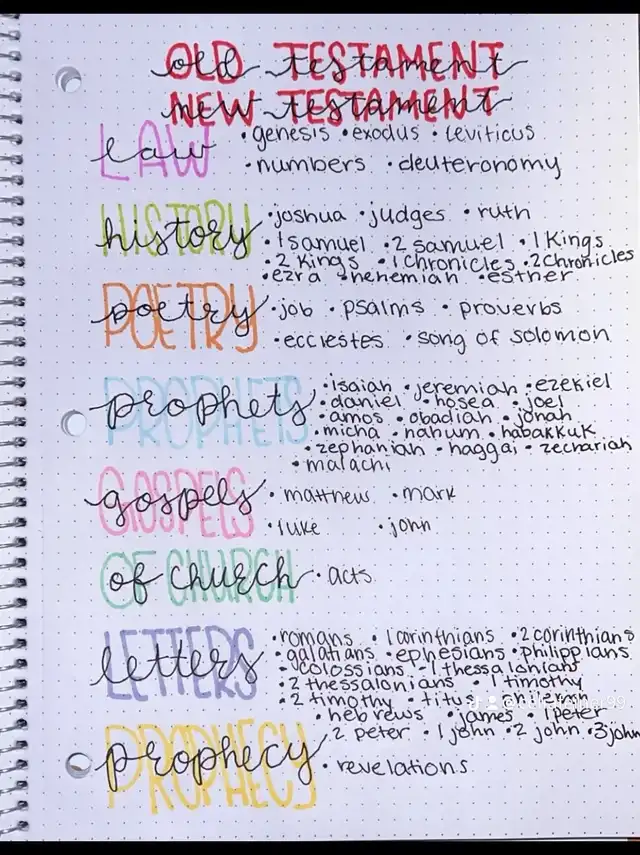 OLD TESTAMENT
NEW TESTAMENT
law • genesis • exodus • leviticus
• numbers • deuteronomy
history • joshua • judges • ruth
• 1 samuel • 2 samuel • 1 Kings
• 2 Kings • 1 chronicles • 2 chronicles
• ezra • nehemiah • esther
poetry • job • psalms • proverbs
• ecclestes • song of solomon
prophets • isaiah • jeremiah • ezekiel
• daniel • hosea • joel
• amos • obadiah • jonah
• micha • nahum • habakkuk
• zephaniah • haggai • zechariah
• malachi
gospels • matthew • mark
• luke • john
of church • acts
letters • romans • 1 corinthians • 2 corinthians
• galatians • ephesians • philippians
• colossians • 1 thessalonians
• 2 thessalonians • 1 timothy
• 2 timothy • titus
• hebrews • james • 1 peter
2 peter • 1 john • 2 john • 3 john
prophecy • revelations